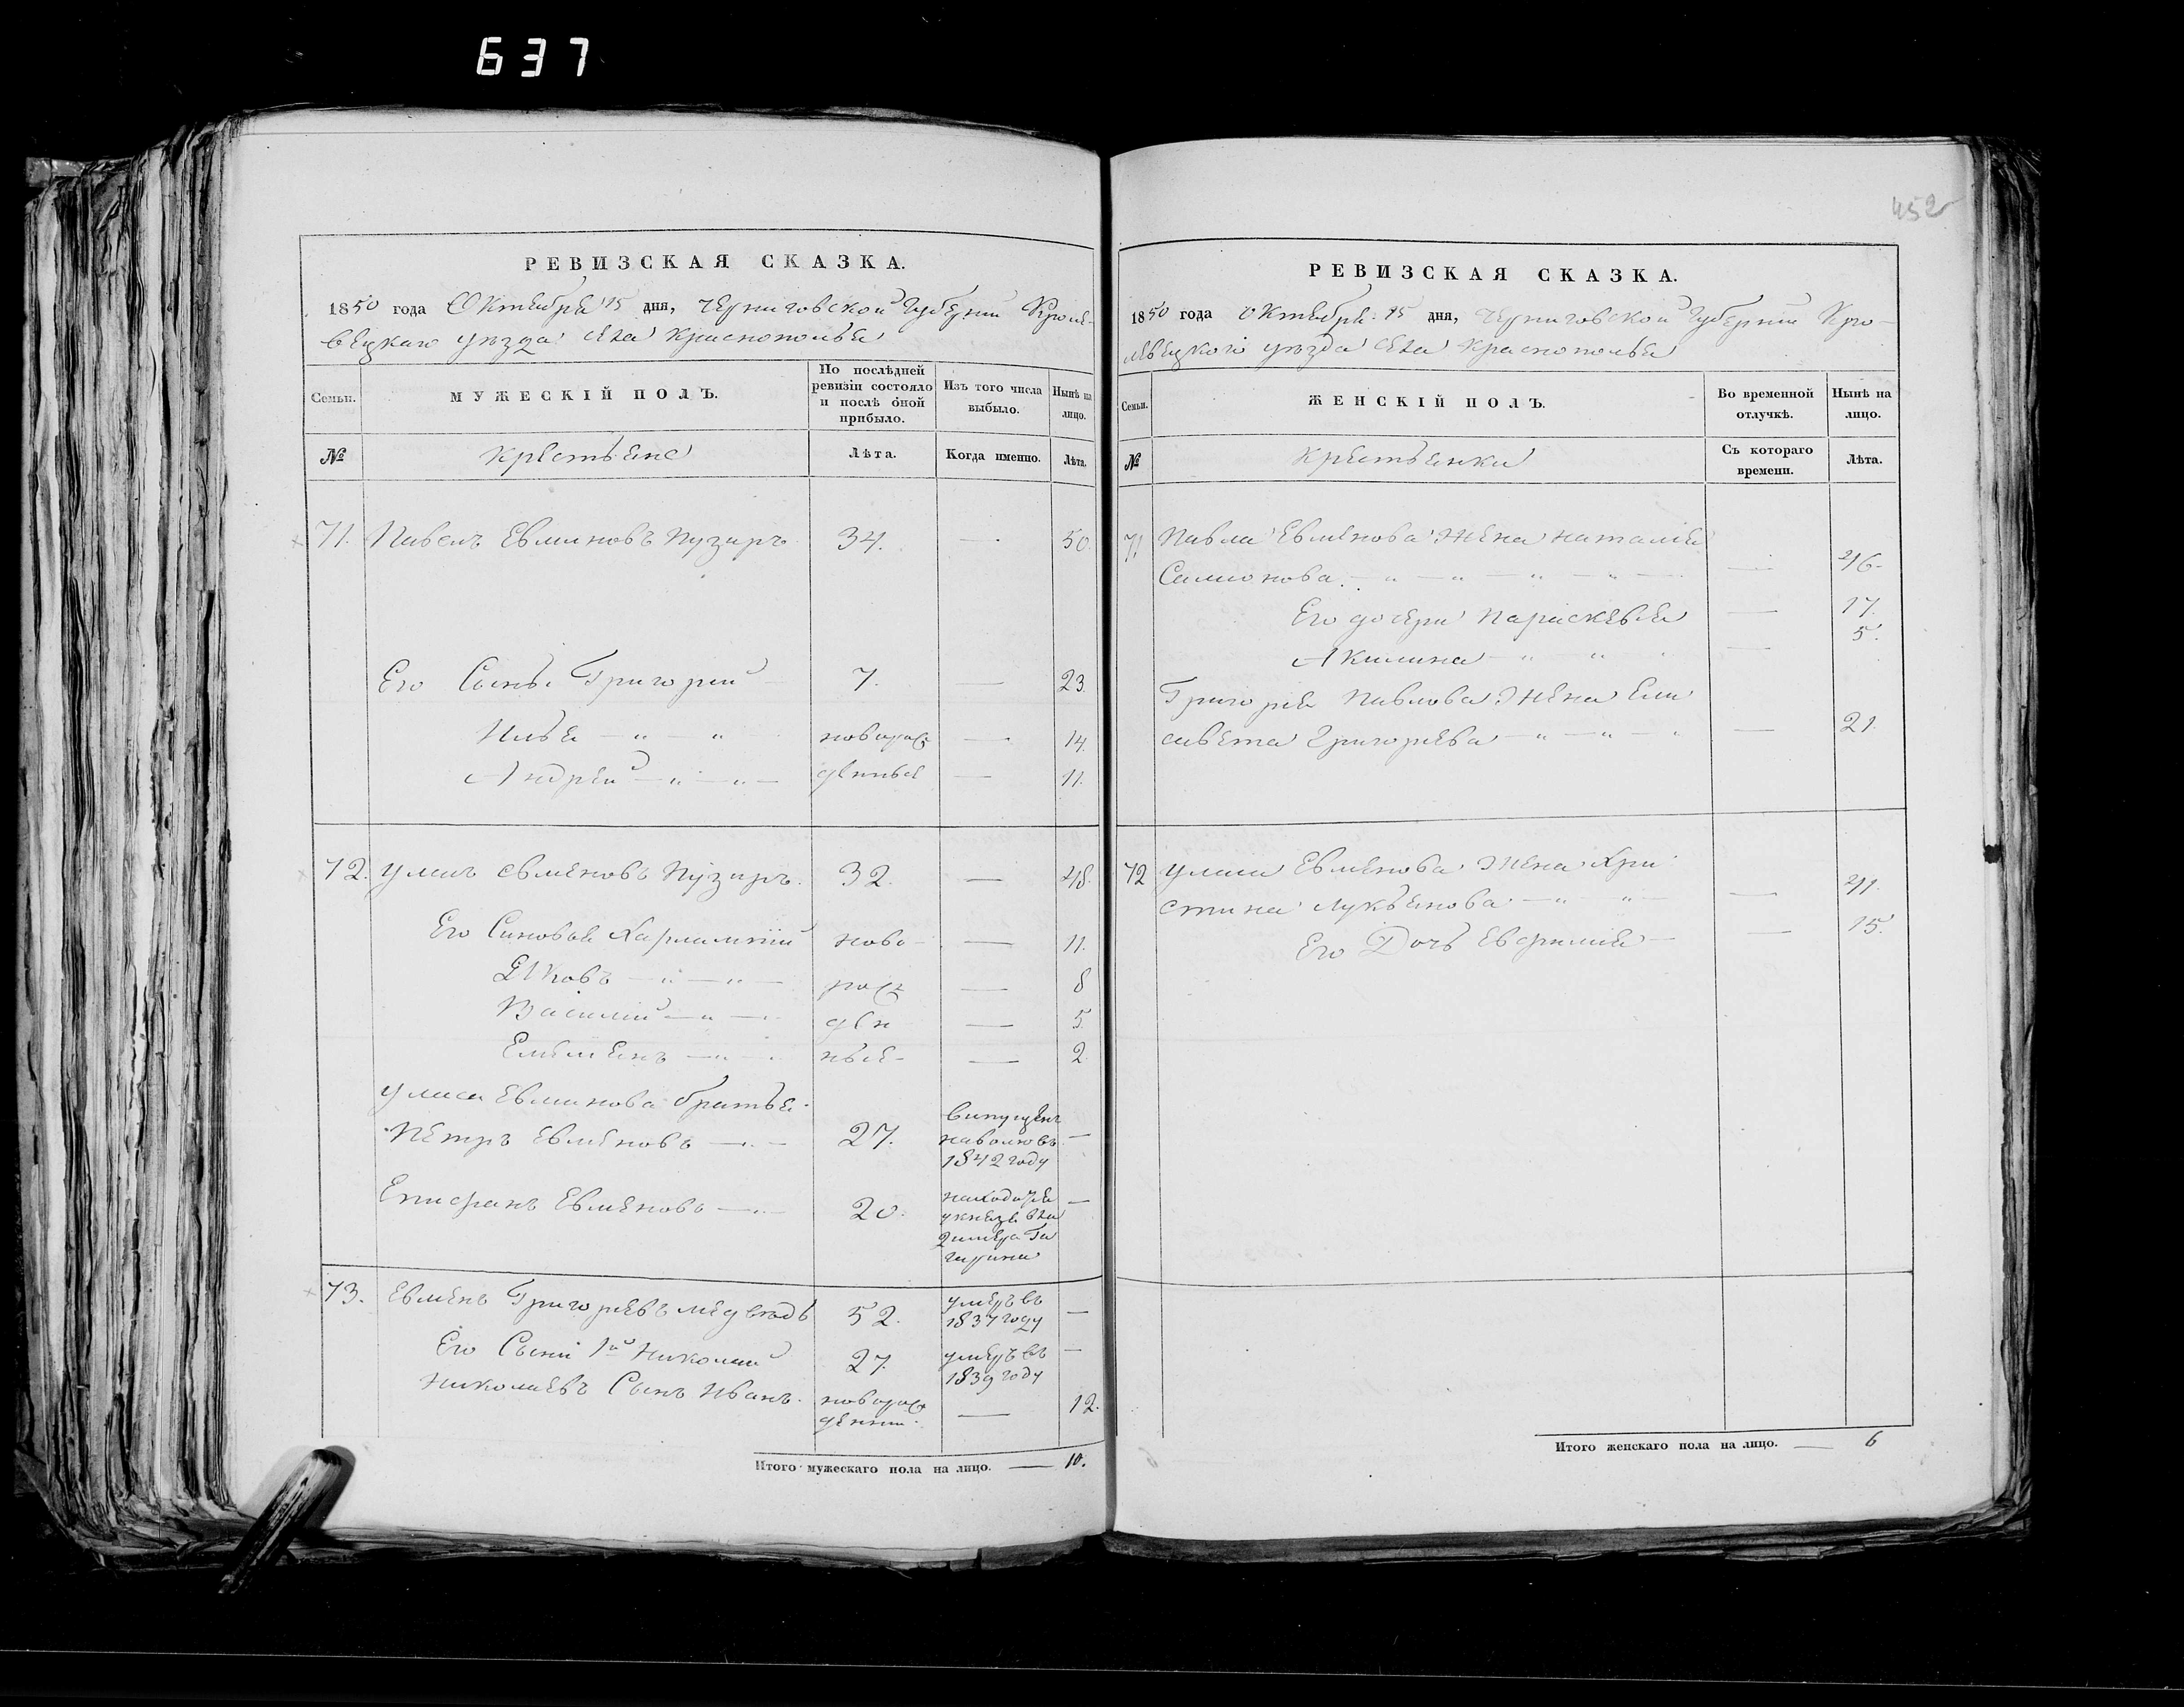 637
452
РЕВИЗСКАЯ СКАЗКА.
1850 года Октября 15 дня, Черниговской Губернии Кроле-
вецкаго уезда села Краснополья
Семьи.
МУЖЕСКІЙ ПОЛЪ.
По послѣдней ревизіи состояло и послѣ оной прибыло.
Изъ того числа выбыло.
Нынѣ на лицо.
№
Крестьяне
Лѣта.
Когда именно.
Лѣта.
71. Павелъ Евминовъ Пузиръ 34. — 50.
Его Сынъ. Григорий 7. — 23.
Илья — " — " новорож — 14.
Андрей — " — " — денные — 11.
72. Уласъ Евменовъ Пузиръ. 32. — 48.
Его Синовья Харлампий ново — — 11.
Яковъ — " — " — рож — 8
Василий — " — ден — 5.
Емельянъ — " — ные — — 2.
Уласа Евминова братья
Петръ Евменовъ — " — 27. випущенъ наволю въ 1842 году —
Епифанъ Евменовъ — " — 20. находится у князя Вла димера Га гарина —
73. Евменъ Григорьевъ Медведь 52. умеръ въ 1837 году —
Его Сыни 1й Николай 27. умеръ въ 1839 году —
Николаевъ Сынъ Иванъ. новорож денни. — 12.
Итого мужескаго пола на лицо. — 10.
РЕВИЗСКАЯ СКАЗКА.
1850 года Октября 15 дня, Черниговской Губернии Кро-
левецкого уезда села Краснополья
Семьи.
ЖЕНСКІЙ ПОЛЪ.
Во временной отлучкѣ.
Нынѣ на лицо.
№
Крестьянки
Съ котораго времени.
Лѣта.
71 Павла Евменова Жена Наталия
Самионова. — " — " — " — " — — 46.
Его дочери Параскевья — 17.
Акилина — " — " — 5.
Григорья Павлова Жена Ели
савета Григорьева — " — " — " — 21.
72 Уласа Евменова Жена Хри
стина Лукьянова — " — " — — 41.
Его Дочь Евфимия — — 15.
Итого женскаго пола на лицо. — 6